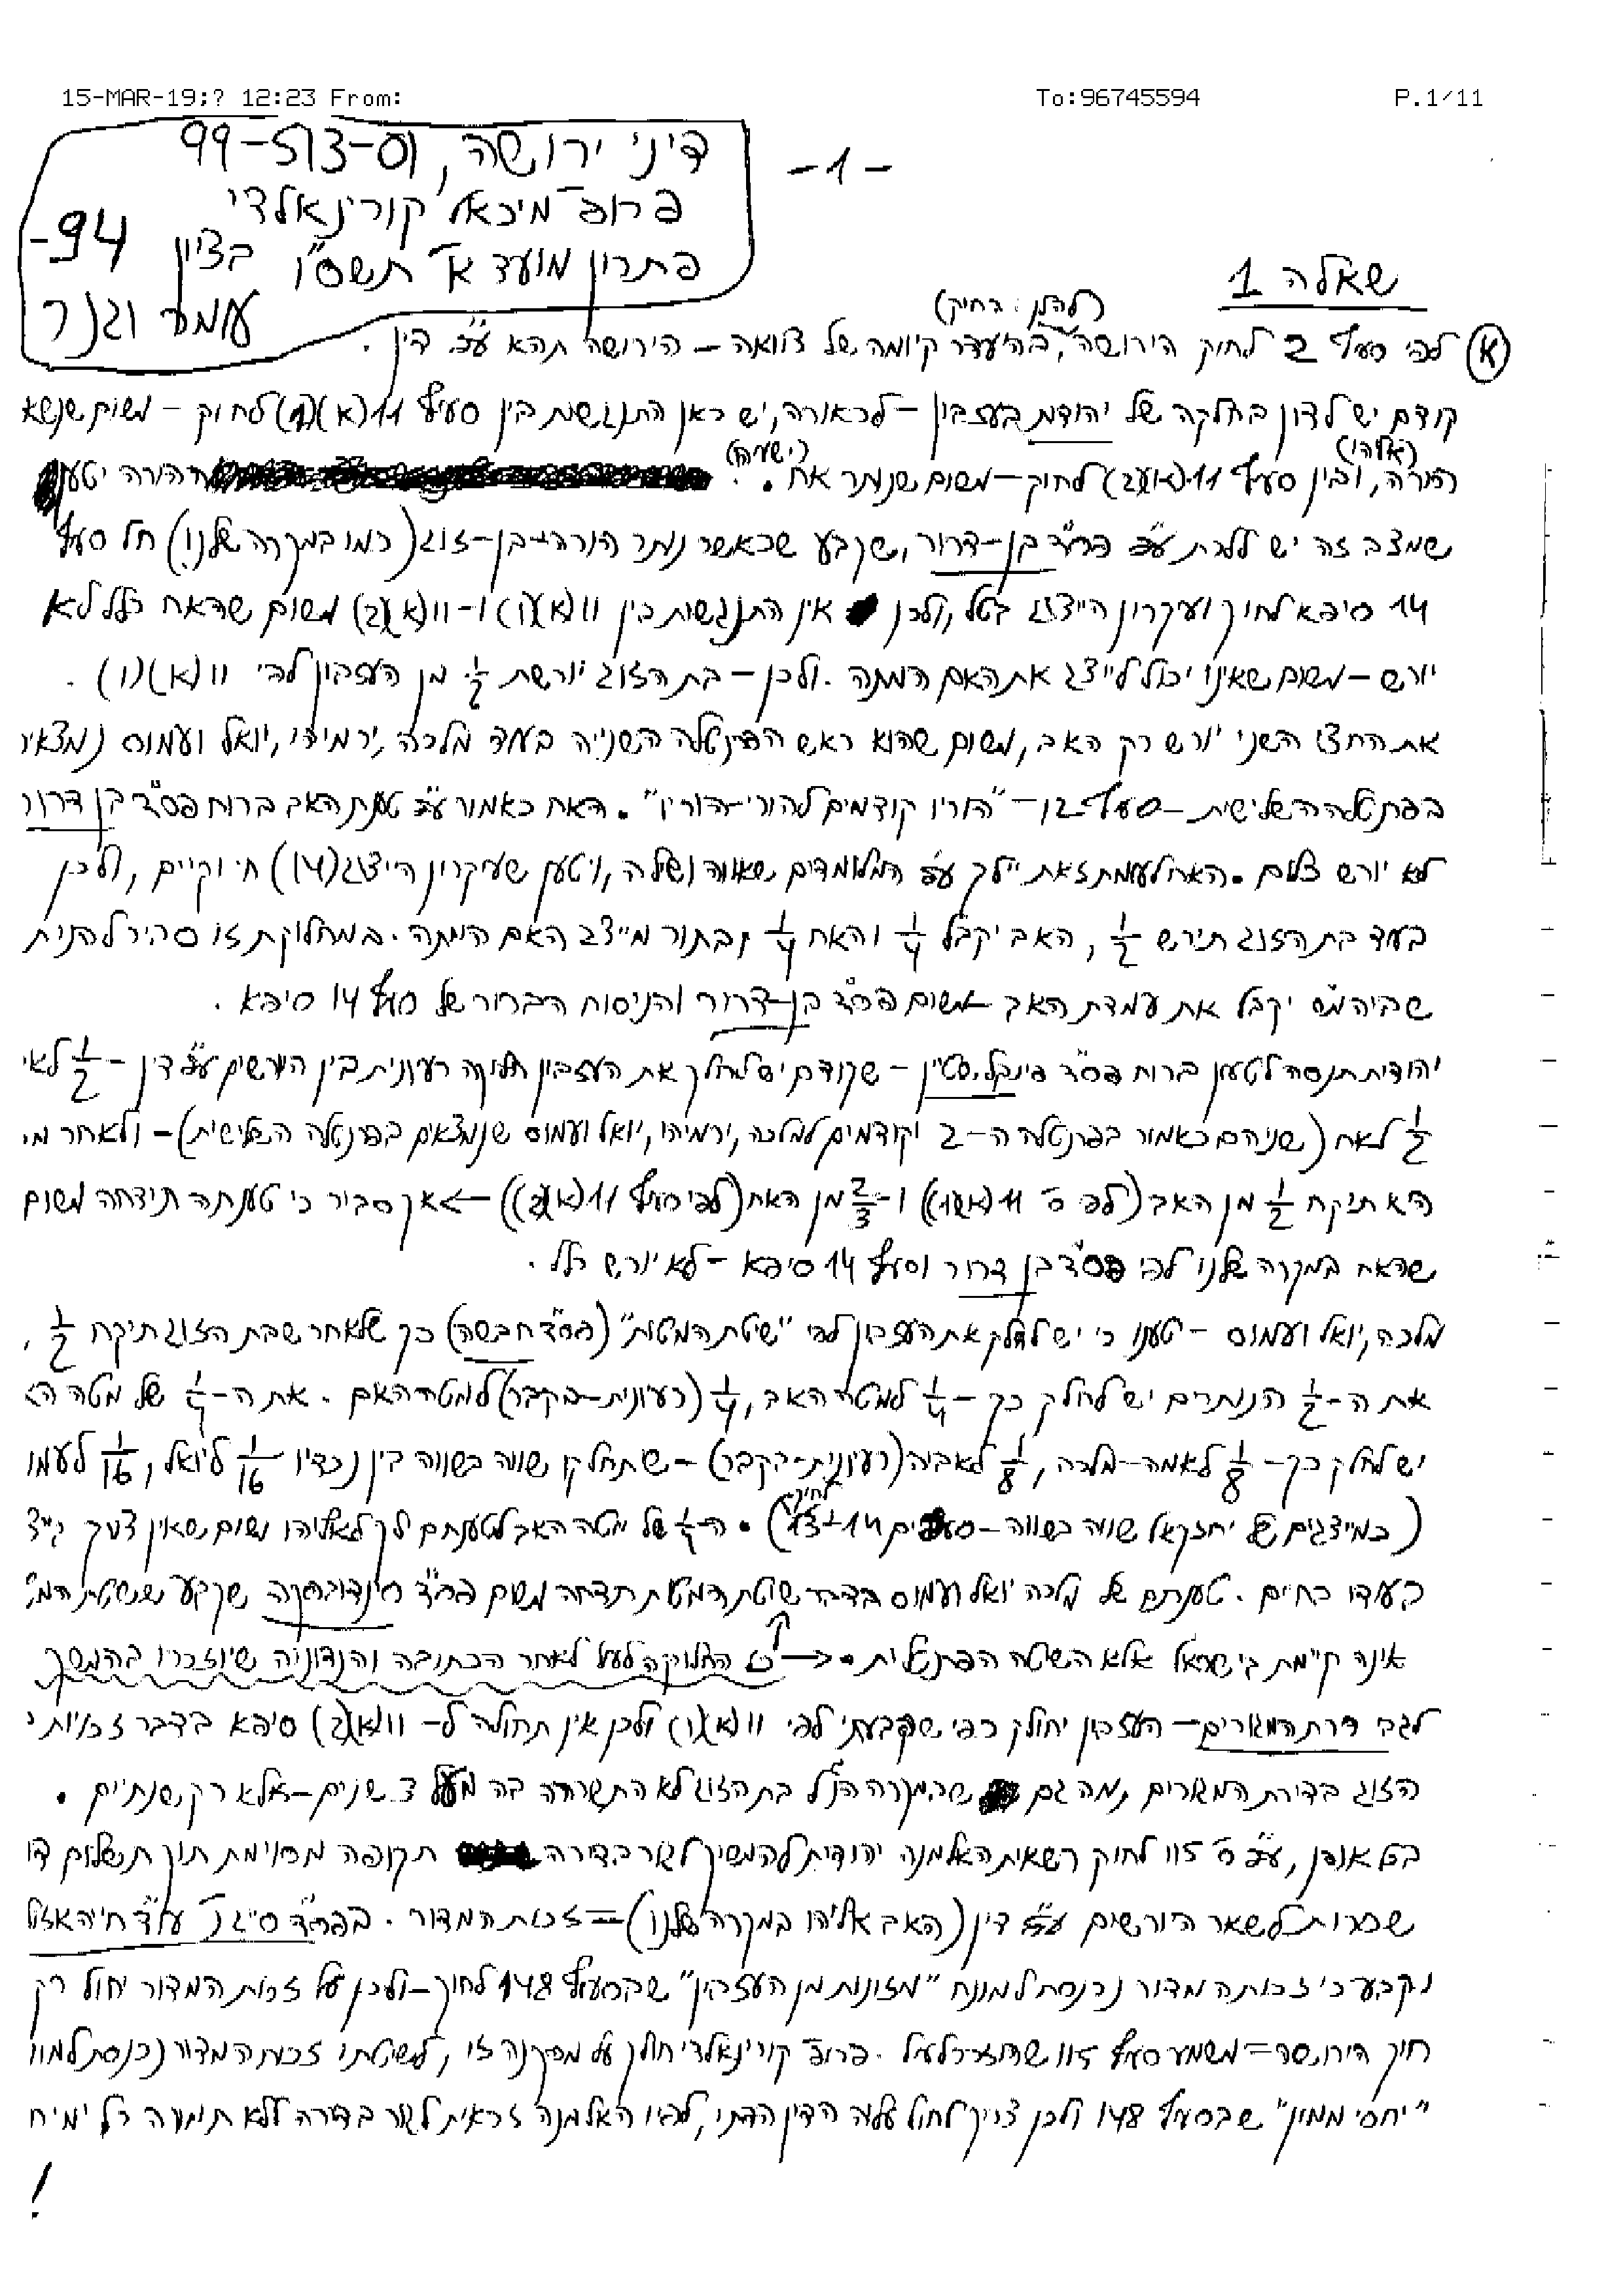 15-MAR-19;? 12:23 From: To:96745594 P.1/11
-1-
דיני ירושה, 99-513-01
פרופ' מיכאל קורינאלדי
פתרון מועד א' תשס"ו בציון 94-
עומר וגנר
שאלה 1
(להלן: החוק)
(א) לפי סעיף 2 לחוק הירושה, בהיעדר קיומה של צוואה - הירושה תהא ע"פ דין.
קודם יש לדון בחלקה של יהודית בעזבון - לכאורה, יש כאן התנגשות בין סעיף 11(א)(1) לחוק - משום שנשאר
(אליהו) (ישעיה)
הורה, ובין סעיף 11(א)(2) לחוק - משום שנותר אח. ההורה יטען
שמצב זה יש ללכת ע"פ פס"ד בן-דרור, שקבע שכאשר נותר הורה ובן-זוג (כמו במקרה שלנו) חל סעיף
14 סיפא לחוק ועיקרון הייצוג בטל, ולכן אין התנגשות בין 11(א)(1) ו-11(א)(2) משום שהאח כלל לא
יורש - משום שאינו יכול לייצג את האם המתה. ולכן - בת הזוג יורשת 1/2 מן העזבון לפי 11(א)(1).
את החצי השני יורש רק האב, משום שהוא ראש הפרנטלה השנייה בעוד מלכה, ירמיהו, יואל ועמוס נמצאים
בפרנטלה השלישית - סעיף 12 - "הוריו קודמים להורי-הוריו". האח כאמור ע"פ טענת האב ברוח פס"ד בן דרור
לא יורש כלום. האח לעומת זאת יילך ע"פ המלומדים שאווה ושילה, ויטען שעיקרון הייצוג (14) חי וקיים, ולכן
בעוד בת הזוג תירש 1/2, האב יקבל 1/4 והאח 1/4 בתור מייצג האם המתה. במחלוקת זו סביר להניח
שביהמ"ש יקבל את עמדת האב - משום פס"ד בן-דרור והניסוח הברור של סעיף 14 סיפא.
יהודית תנסה לטעון ברוח פס"ד פינקלשטין - שקודם יש לחלק את העזבון חלוקה רעיונית בין היורשים ע"פ דין - 1/2 לאב
1/2 לאח (שניהם כאמור בפרנטלה ה-2 וקודמים למלכה, ירמיהו, יואל ועמוס שנמצאים בפרנטלה השלישית) - ולאחר מכן
היא תיקח 1/2 מן האב (לפי ס' 11(א)(1)) ו-2/3 מן האח (לפי סעיף 11(א)(2)) -> אך סביר כי טענתה תידחה משום
שהאח במקרה שלנו לפי פס"ד בן דרור וסעיף 14 סיפא - לא יורש כלל.
מלכה, יואל ועמוס - יטענו כי יש לחלק את העזבון לפי "שיטת המטות" (פס"ד חבשה) כך שלאחר שבת הזוג תיקח 1/2,
את ה-1/2 הנותרים יש לחלק כך - 1/4 למטה האב, 1/4 (רעיונית-בקבר) למטה האם. את ה-1/4 של מטה
יש לחלק כך - 1/8 לאמה-מלכה, 1/8 לאביה (רעיונית-בקבר) - שתחלק שווה בשווה בין נכדיו 1/16 ליואל, 1/16 לעמוס
לחוק
(כמייצגים של יחזקאל שווה בשווה - סעיפים 14+13). ה-1/4 של מטה האב לטענתם ילך לאליהו משום שאין צורך
בעודו בחיים. טענתם של מלכה יואל ועמוס בדבר שיטת המטות תדחה משום פס"ד סינדובסקה שקבע ששיטת
אינה קיימת בישראל אלא השיטה הפרנטלית. -> כל החלוקה לעיל לאחר הכתובה והנדוניה שיוזכרו בהמשך
לגבי דירת המגורים - העזבון יחולק כפי שקבעתי לפי 11(א)(1) ולכן אין תחולה ל-11(א)(2) סיפא בדבר זכויות
הזוג בדירת המגורים, מה גם שבמקרה הנ"ל בת הזוג לא התגוררה בה מעל 3 שנים - אלא רק שנתיים.
בכל אופן, ע"פ ס' 115 לחוק רשאית האלמנה יהודית להמשיך לגור בדירה תקופה מסוימת תוך תשלום
שכירות לשאר היורשים ע"פ דין (האב אליהו במקרה שלנו) = זכות המדור. בפס"ד סיגר ע"ד חיה אזולאי
נקבע כי זכות המדור נכנסת למונח "מזונות מן העזבון" שבסעיף 148 לחוק - ולכן על זכות המדור יחול רק
חוק הירושה = משמע סעיף 115 שהוזכר לעיל. פרופ' קורינאלדי חולק על מסקנה זו, לשיטתו זכות המדור נכנסת למונח
"יחסי ממון" שבסעיף 148 ולכן צריך לחול עליה הדין הדתי, לפיו האלמנה זכאית לגור בדירה ללא תמורה כל ימי